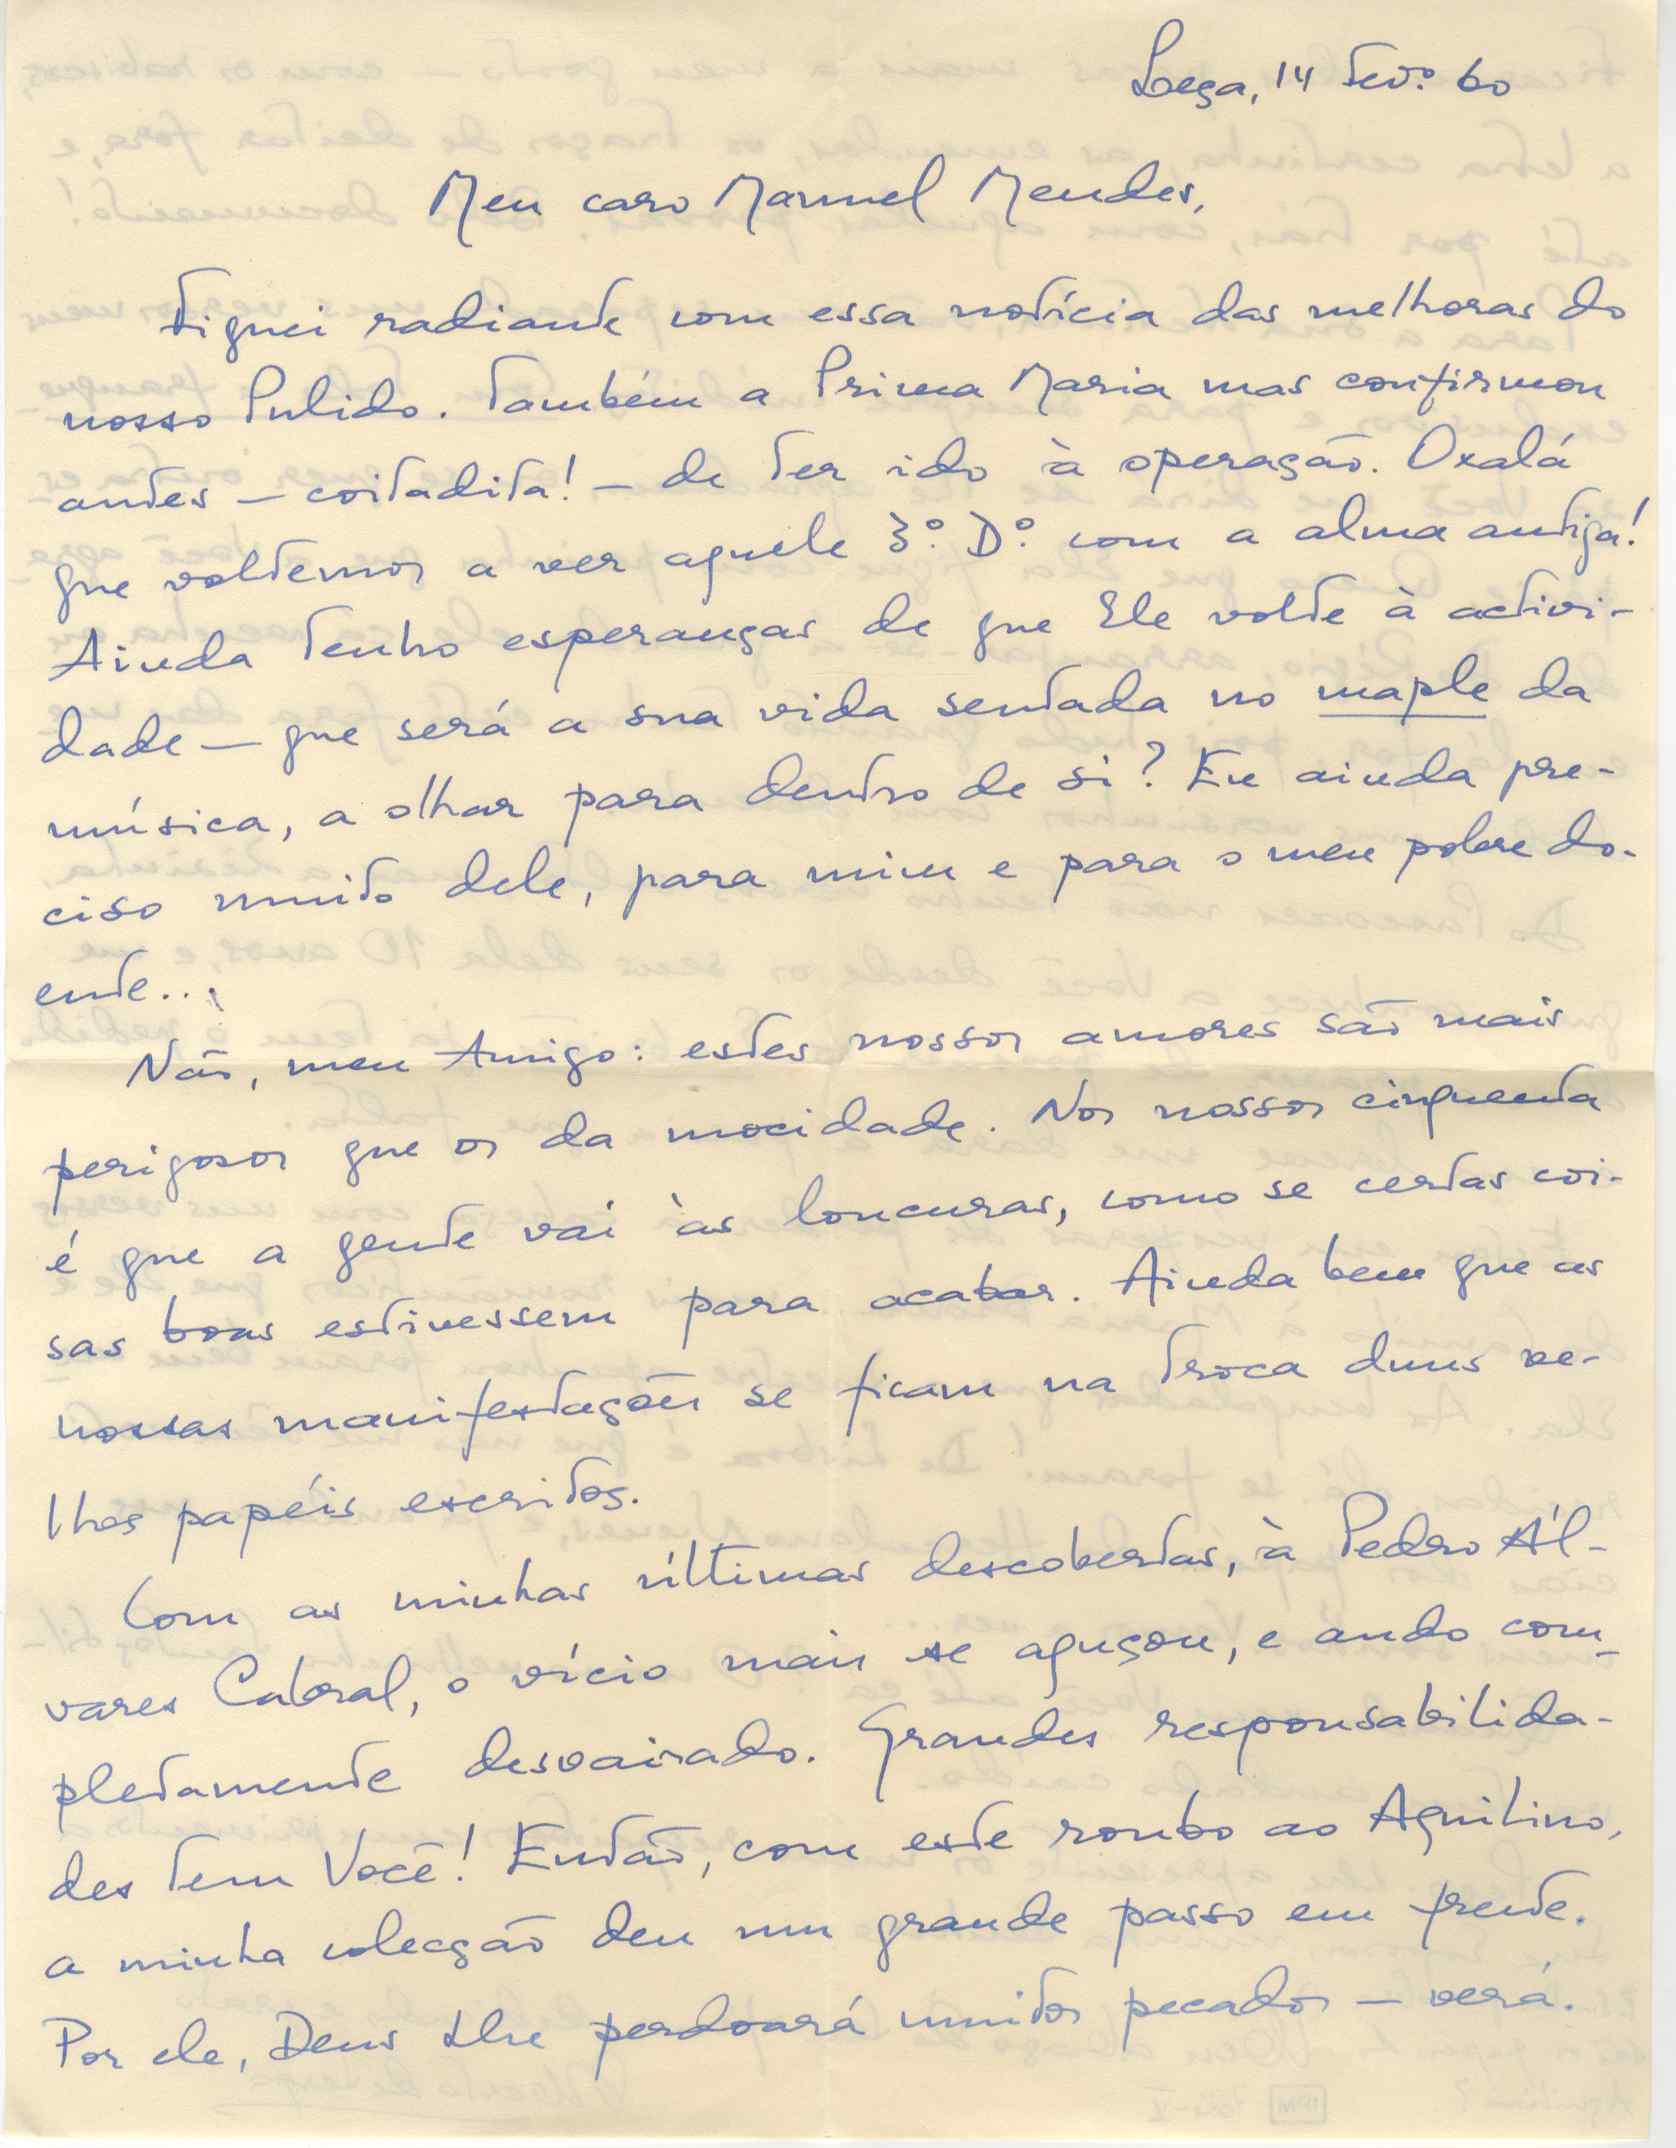 Leça, 14 Fev.º 60
Meu caro Manuel Mendes,
Fiquei radiante com essa notícia das melhoras do
nosso Pulido. Também a Prima Maria mas confirmou
antes — coitadita! — de ter ido à operação. Oxalá
que voltemos a ver aquele 3.º D.º com a alma antiga!
Ainda tenho esperanças de que Ele volte à activi-
dade — que será a sua vida sentada no maple da
música, a olhar para dentro de si? Eu ainda pre-
ciso muito dele, para mim e para o meu pobre do-
ente...
Não, meu Amigo: estes nossos amores são mais
perigosos que os da mocidade. Nos nossos cinquenta
é que a gente vai às loucuras, como se certas coi-
sas boas estivessem para acabar. Ainda bem que as
nossas manifestações se ficam na troca duns ve-
lhos papéis escritos.
Com as minhas últimas descobertas, à Pedro Ál-
vares Cabral, o vício mais se aguçou, e ando com-
pletamente desvairado. Grandes responsabilida-
des tem Você! Então, com este roubo ao Aquilino,
a minha colecção deu um grande passo em frente.
Por ele, Deus lhe perdoará muitos pecados — verá.